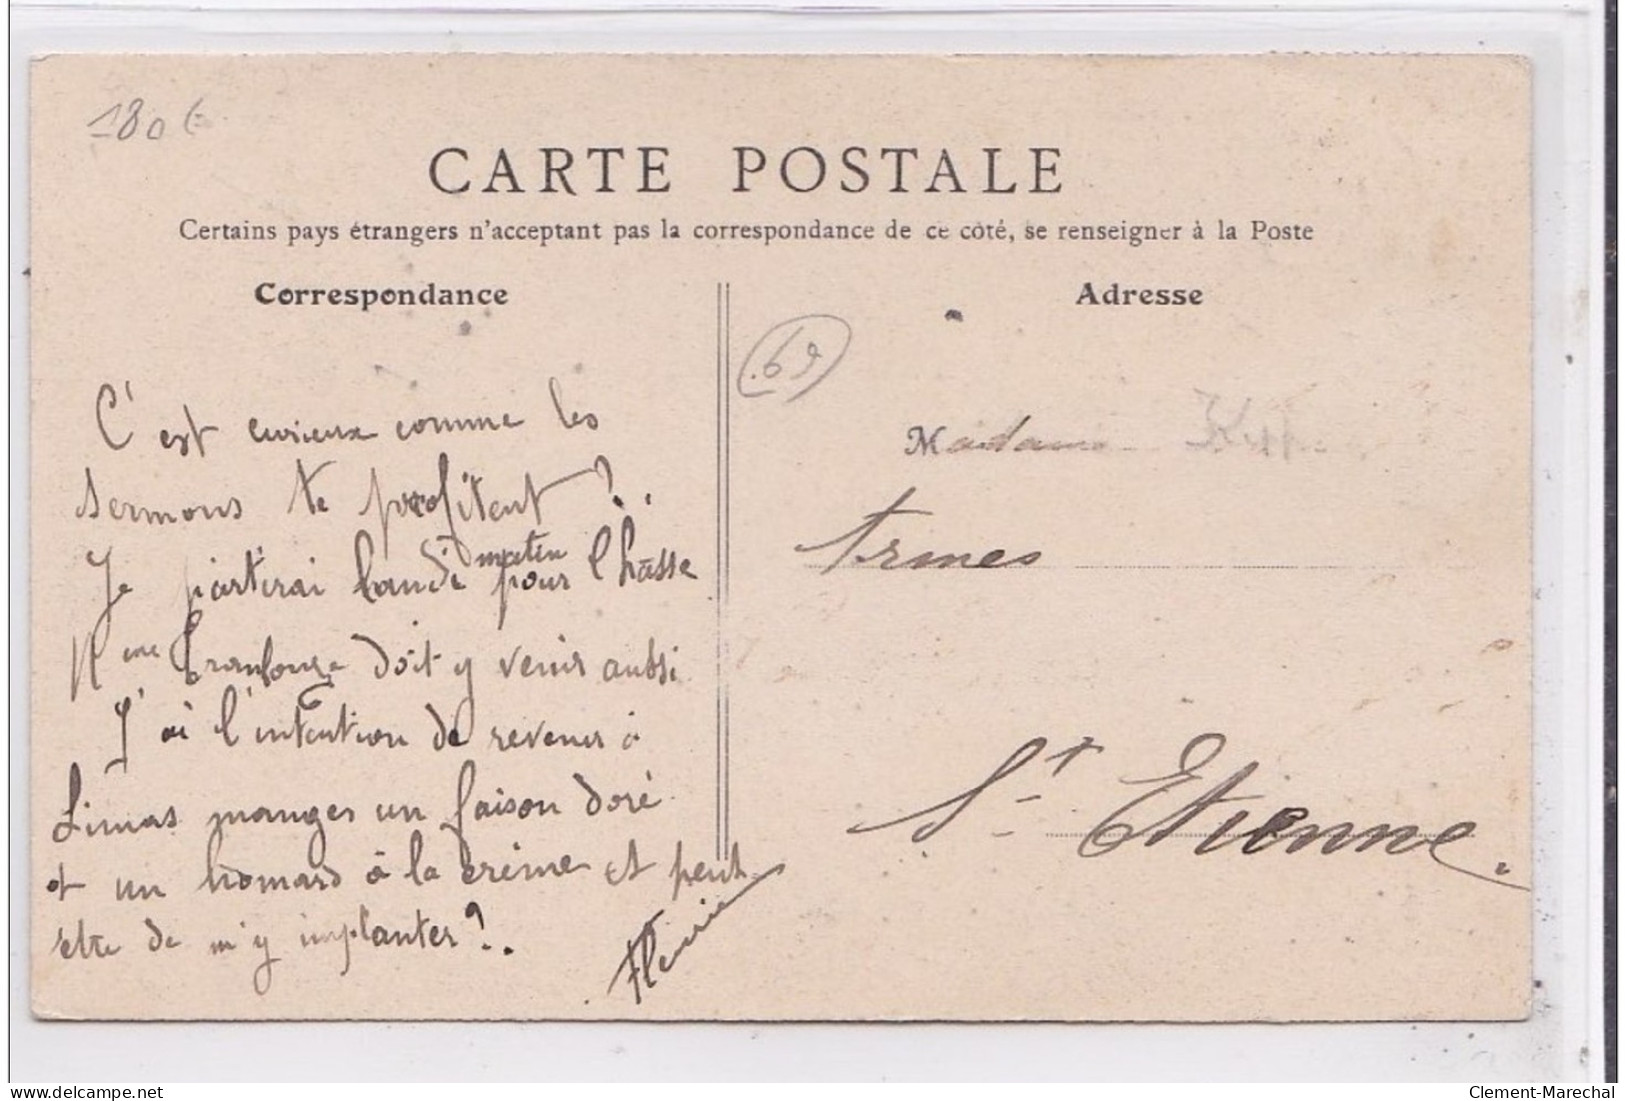 180 €
CARTE POSTALE
Certains pays étrangers n'acceptent pas la correspondance de ce côté, se renseigner à la Poste
Correspondance
Adresse
69
C'est curieux comme les
sermons te profitent ?.
Je partirai lundi matin pour Chasse
Mme doit y venir aussi
J'ai l'intention de revenir à
Limas manger un faison doré
et un homard à la crème et peut
etre de m'y implanter ?.
Fleurie
Madame
Armes
St Etienne.
Clement-Marechal